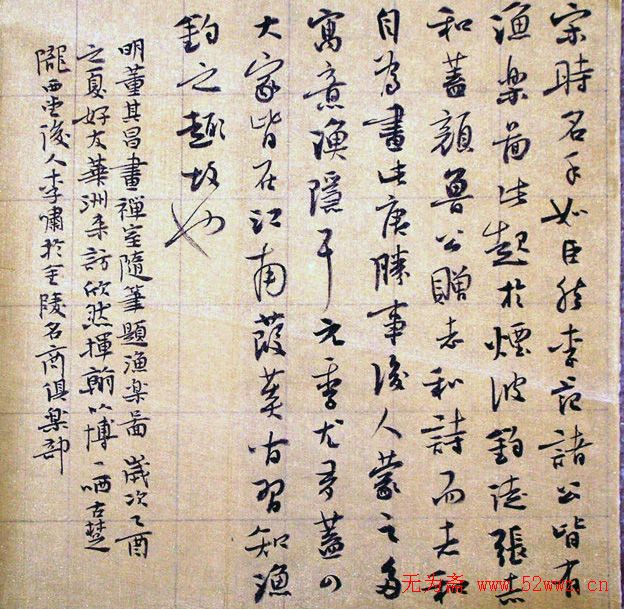 宋時名手如巨然李范諸公皆有
漁楽圖此起於煙波釣徒張志
和蓋顏魯公贈志和詩而志和
自為畫此唐勝事後人蒙之多
寓意漁隱耳元季尤多蓋四
大家皆在江南葭菼間習知漁
釣之趣故也
明董其昌畫禪室隨筆題漁楽圖 歲次乙酉
之夏好友華洲來訪欣然揮翰以博一哂古楚
隴西堂後人李嘯於金陵名商俱樂部
无为斋 www.52wwz.cn